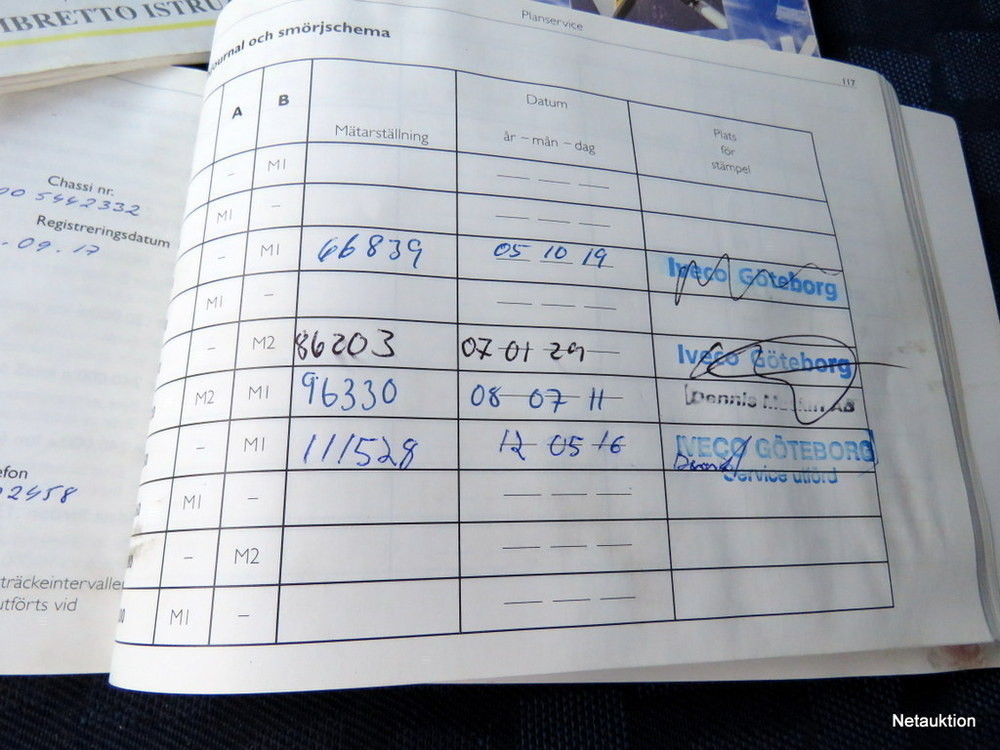 IBRETTO ISTRU
Planservice
journal och smörjschema
117
A B Mätarställning Datum
år – mån – dag
Plats
för
stämpel
Chassi nr.
00 5442332
Registreringsdatum
. 09. 17
– M1
M1 –
– M1 66839 05 10 19 Iveco Göteborg
M1 –
– M2 86203 07 01 29 Iveco Göteborg
M2 M1 96330 08 07 11 Dennis AB
– M1 111528 12 05 16 IVECO GÖTEBORG
Service utförd
efon
2458
M1 –
– M2
M1 –
träckeintervalle
utförts vid
Netauktion